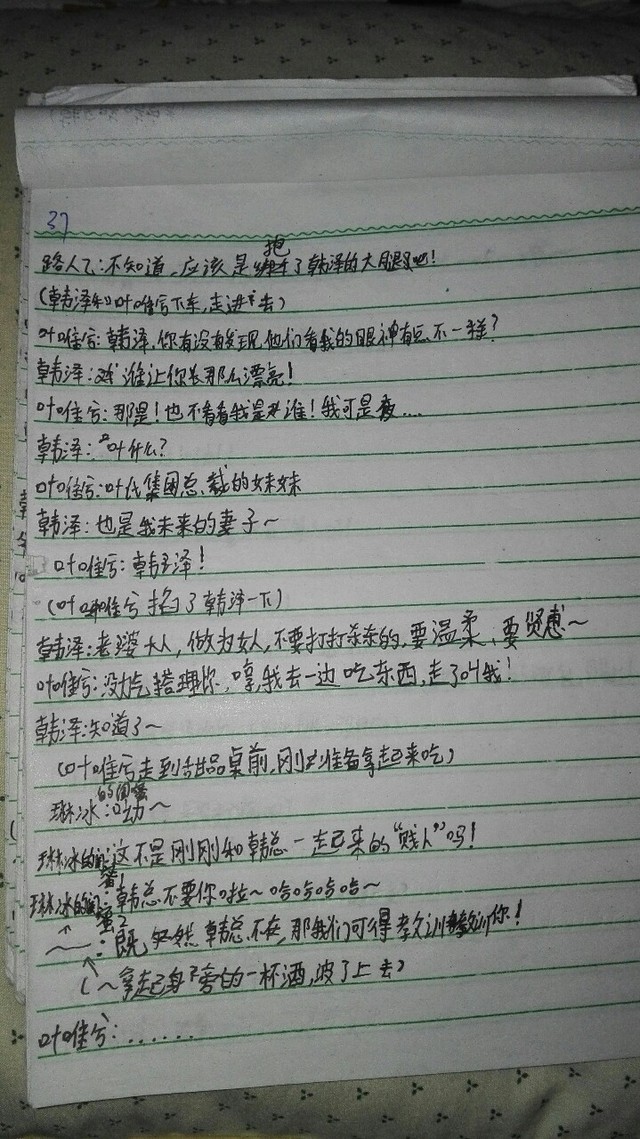 37
路人乙:不知道,应该是抱了韩泽的大腿吧!
(韩泽和叶唯兮下车,走进去)
叶唯兮:韩泽,你有没有发现,他们看我的眼神有点不一样?
韩泽:谁让你长那么漂亮!
叶唯兮:那是!也不看看我是谁!我可是夜....
韩泽:叶什么?
叶唯兮:叶氏集团总裁的妹妹
韩泽:也是我未来的妻子~
叶唯兮:韩泽!
(叶唯兮掐了韩泽一下)
韩泽:老婆大人,做为女人,不要打打杀杀的,要温柔、要贤惠~
叶唯兮:没
搭理你,哼,我去一边吃东西,走了叫我!
韩泽:知道了~
(叶唯兮走到甜品桌前,刚准备拿起来吃)
琳冰的闺蜜:呦~
琳冰的闺蜜1:这不是刚刚和韩总一起来的“贱人”吗!
琳冰的闺蜜2:韩总不要你啦~哈哈哈哈~
~:既然韩总不在,那我们可得教训教训你!
(~拿起身旁的一杯酒,泼了上去)
叶唯兮:......